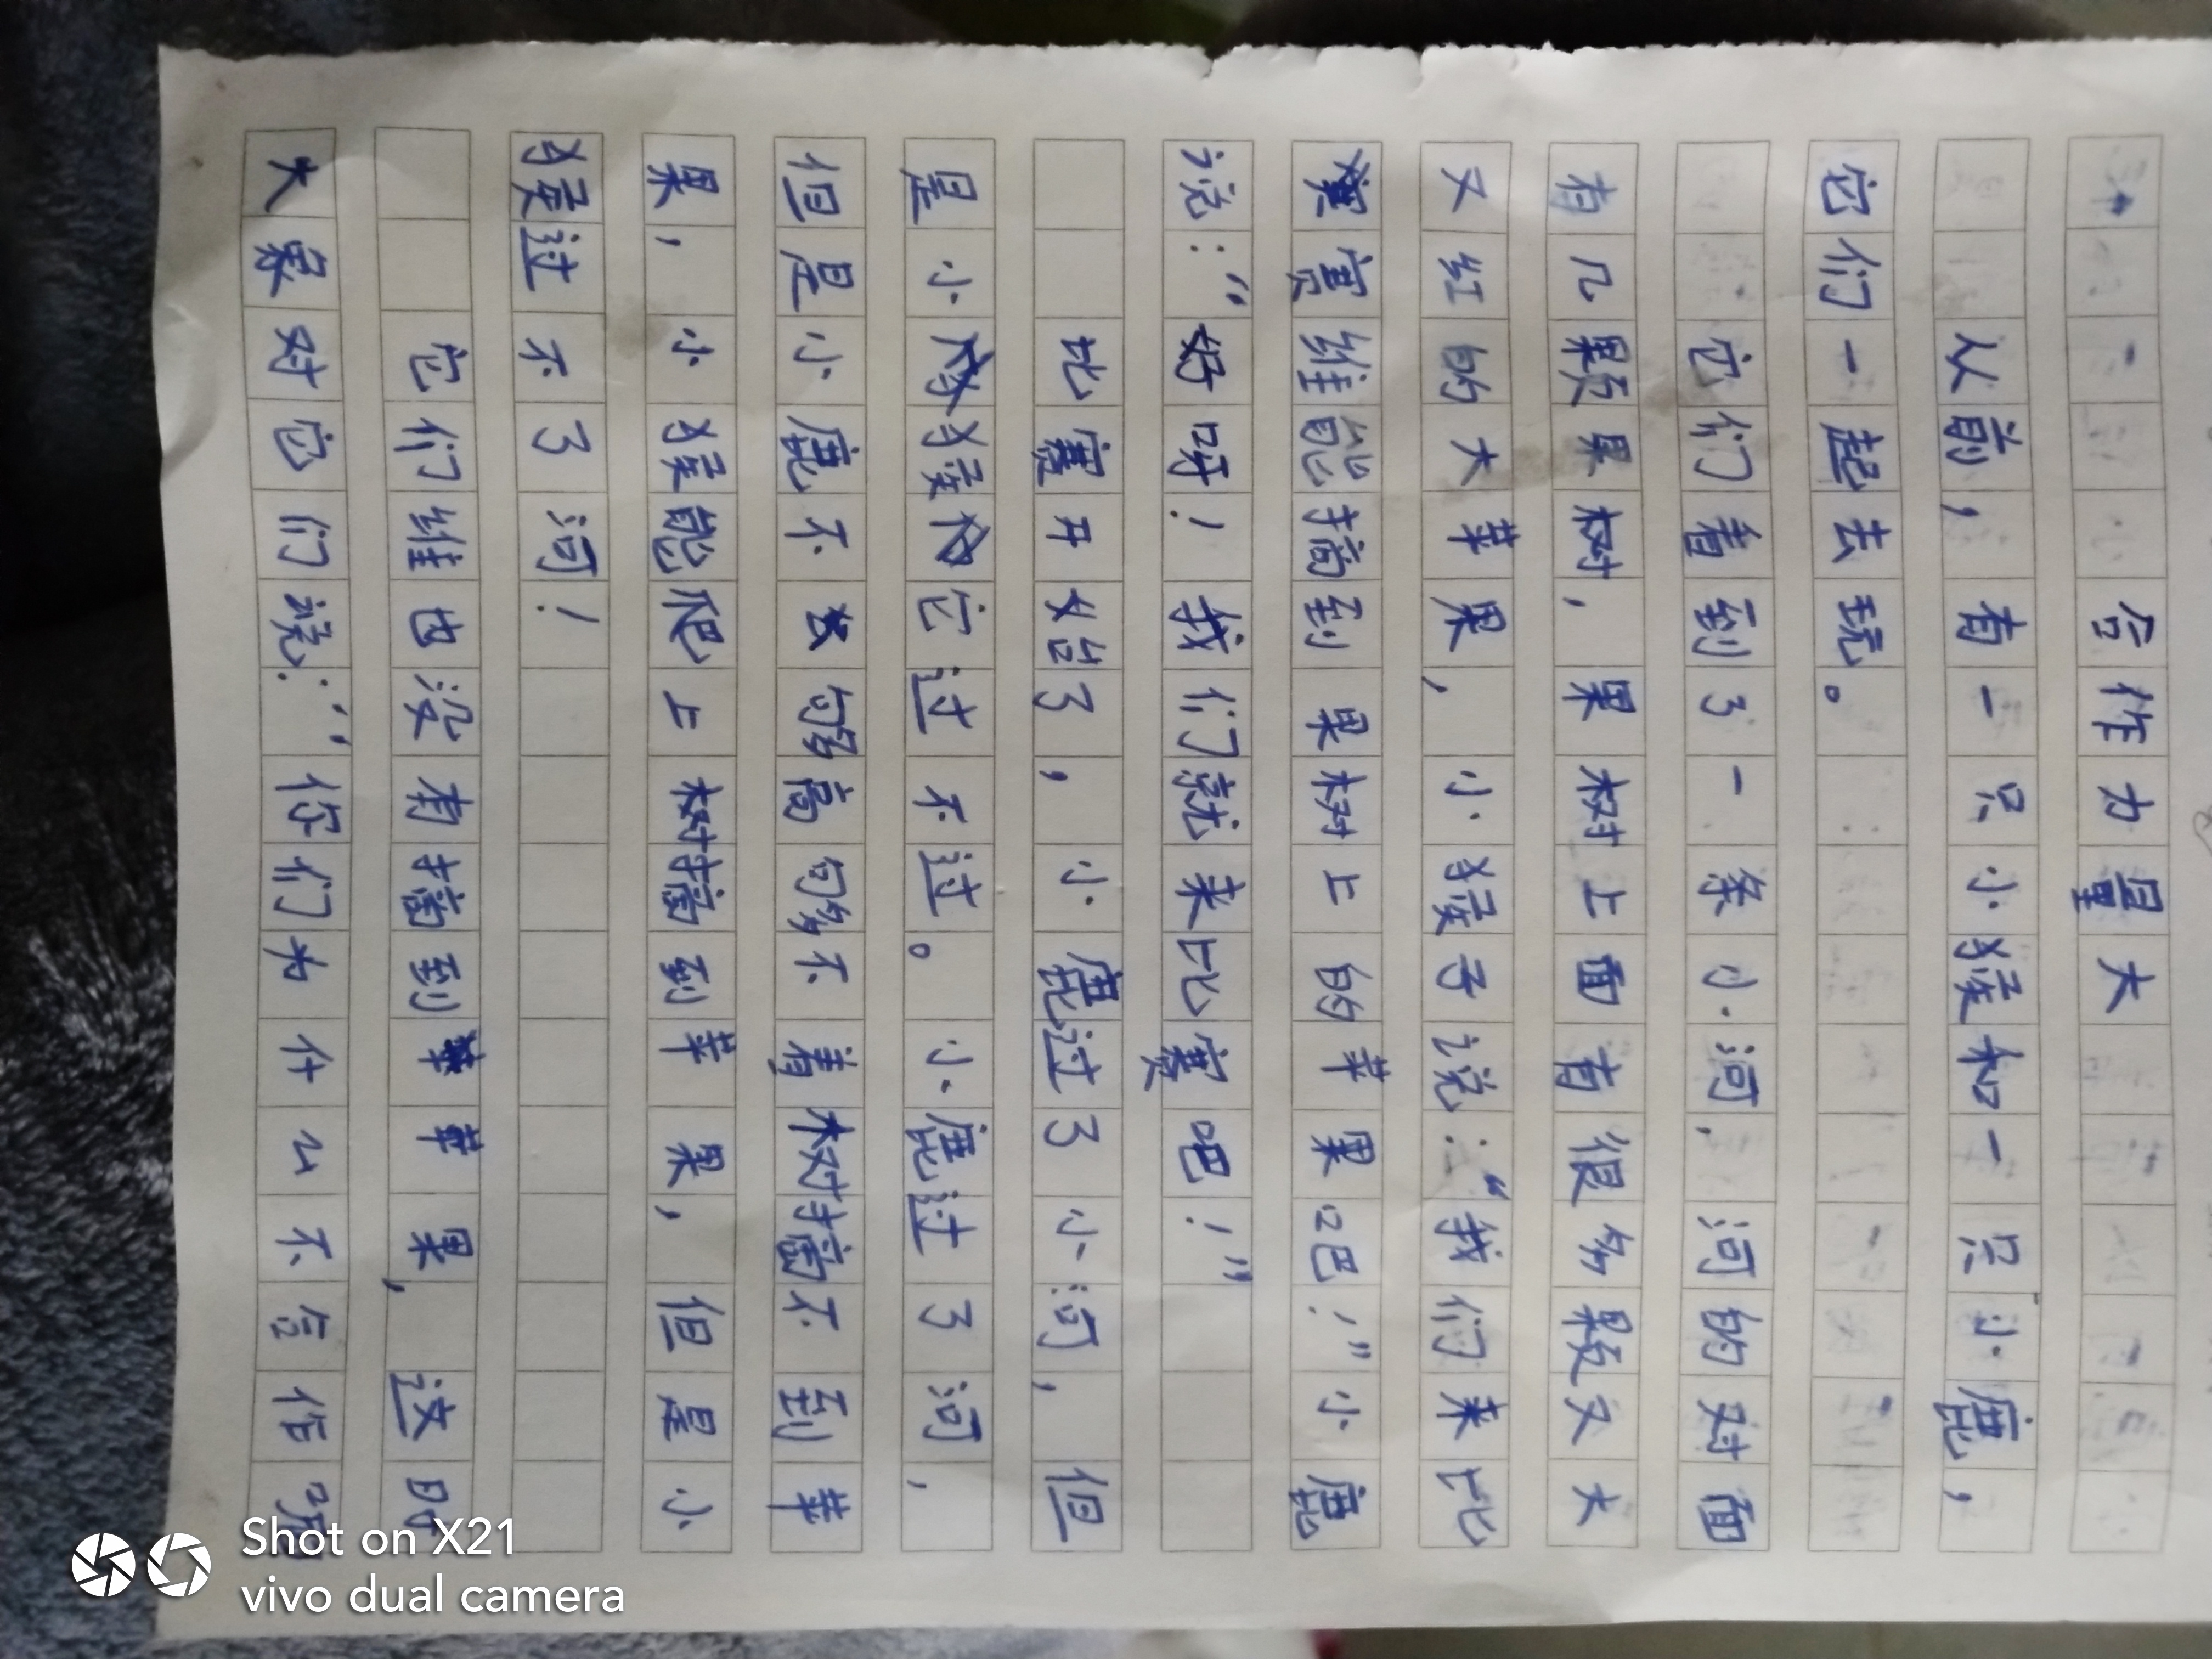 合作力量大
从前，有一只小猴和一只小鹿，
它们一起去玩。
它们看到了一条小河，河的对面
有几颗果树，果树上面有很多颗又大
又红的大苹果，小猴子说：“我们来比
赛维能摘到果树上的苹果吧！”小鹿
说：“好呀！我们就来比赛吧！”
比赛开始了，小鹿过了小河，但
是小猴它过不过。小鹿过了河，
但是小鹿不够高够不着树摘不到苹
果，小猴能爬上树摘到苹果，但是小
猴过不了河！
它们维也没有摘到苹果，这时
大象对它们说：“你们为什么不合作呢
Shot on X21
vivo dual camera